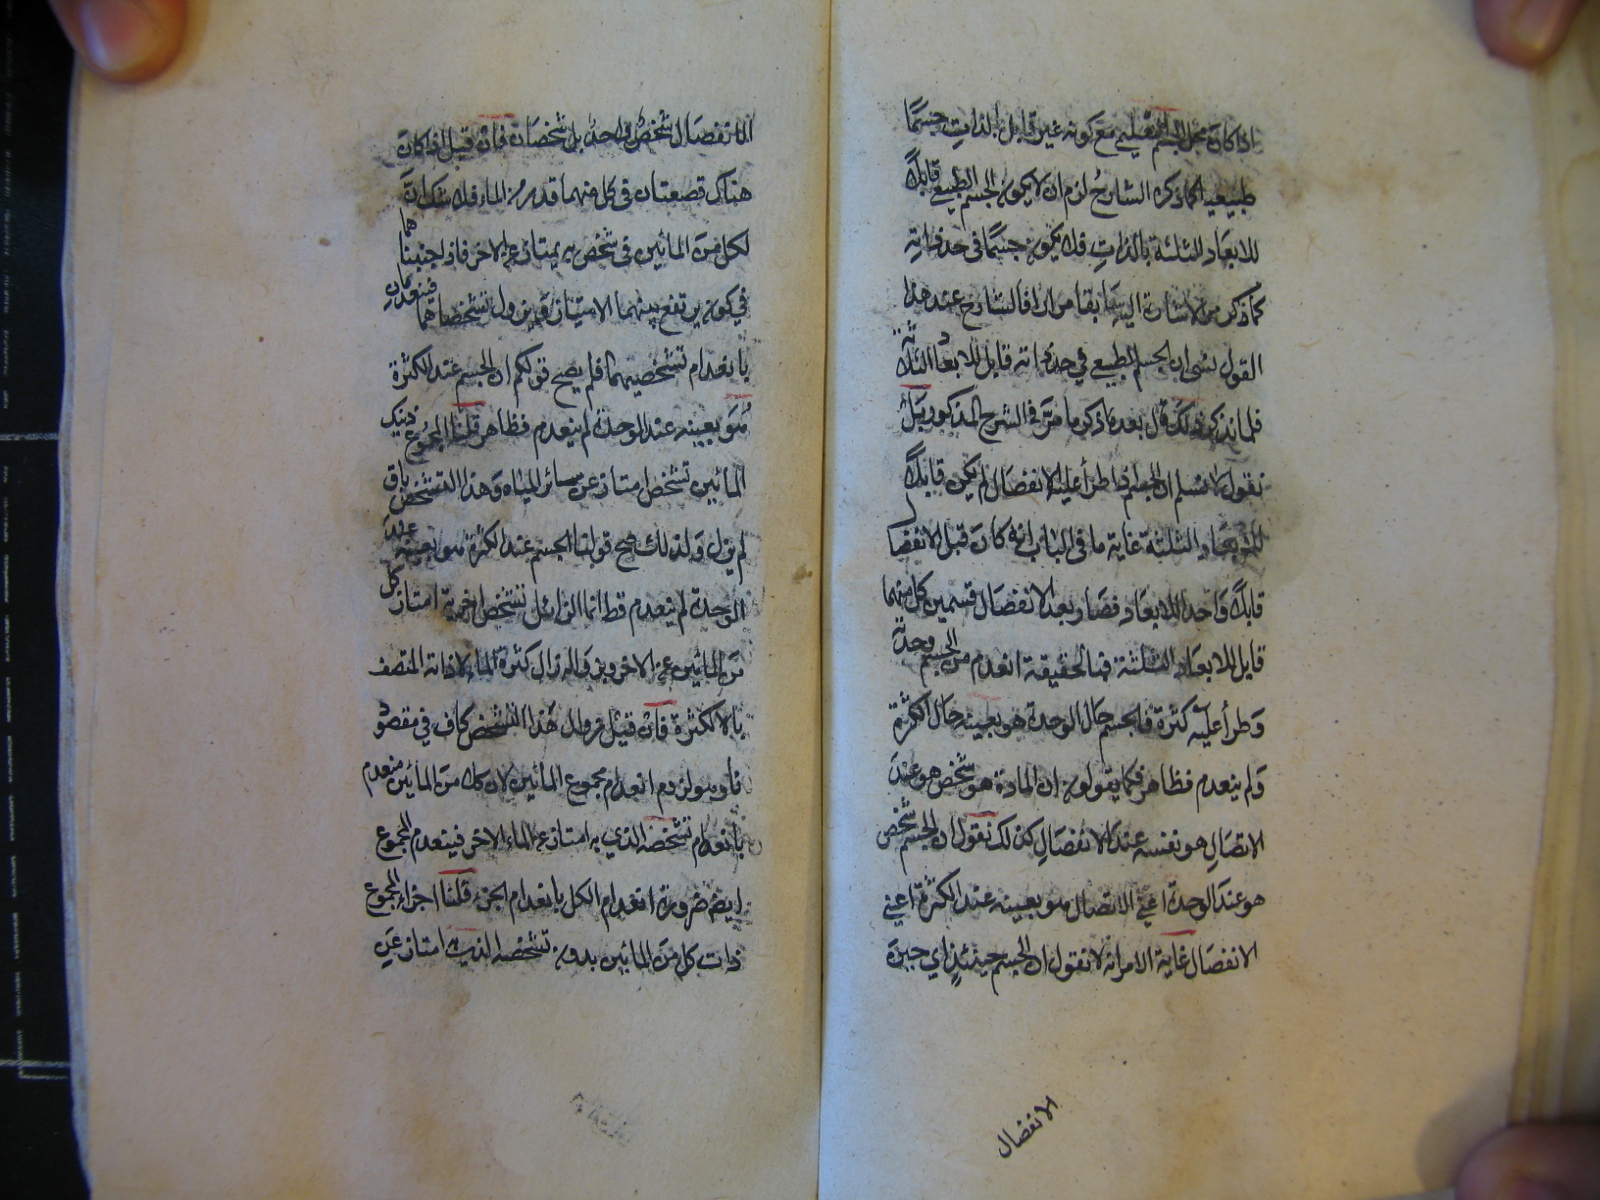 اذا كان محل الجسم التعليمي مع كونه غير قابل بالذات جسمًا
طبيعيا كما ذكره الشارح لزم ان لا يكون الجسم الطبيعي قابلًا
للابعاد الثلثة بالذات فلا يكون جسمًا في حد ذاته
كما ذكر من الاشارة اليه سابقا من ان الشارح عند هذا
القول نسي ان الجسم الطبيعي في حد ذاته قابل للابعاد الثلاثة
فلما تذكر ذلك قال بعد ما ذكر ما مر في الشرح المذكور بل
نقول لا نسلم ان الجسم اذا طرأ عليه الانفصال لم يكن قابلًا
للابعاد الثلثة غاية ما في الباب انه كان قبل الانفصا
قابلًا واحدا للابعاد فصار بعد الانفصال قسمين كل منهما
قابل للابعاد الثلثة فبالحقيقة انعدم من الجسم وحدته
وطرأ عليه كثرة فالجسم حال الوحدة هو بعينه حال الكثرة
ولم ينعدم فظاهر فكما يقولون ان المادة هو شخص هو عند
الاتصال هو نفسه عند الانفصال كذلك نقول ان الجسم شخص
هو عند الوحدة اعني الاتصال هو بعينه عند الكثرة اعني
الانفصال غاية الامر انه لا نقول ان الجسم حينئذ اي حين
الانفصال
الانفصال شخص واحد بل شخصان فان قيل اذا كان
هناك قصعتان في كل منهما قدر من الماء فلا شك ان
لكل من المائين في شخص به يمتاز عن الاخر فاذا جنبناهما
في كوز يرتفع بينهما الامتياز ويزول تشخصاهما فينعدمان
بانعدام تشخصيهما فلم يصح قولكم ان الجسم عند الكثرة
هو بعينه عند الوحدة لم ينعدم فظاهر قلنا لمجموع ذينك
المائين تشخص امتاز عن سائر المياه وهذا التشخص باق
لم يزل ولذلك صح قولنا الجسم عند الكثرة هو بعينه عند
الوحدة لم ينعدم قط انما الزائل تشخص امتاز كل
من المائين عن الاخر وبزواله زال كثرة الماء لا ذاته المتصف
بالكثرة فان قيل زوال هذا التشخص كاف في مقصو
نا وهو لزوم انعدام مجموع المائين لان كلا من المائين منعدم
بانعدام تشخصه الذي به امتاز عن الماء الاخر فينعدم المجموع
ايضا ضرورة انعدام الكل بانعدام الجزء قلنا اجزاء المجموع
ذات كل من المائين بدون تشخصه الذي به امتاز عن